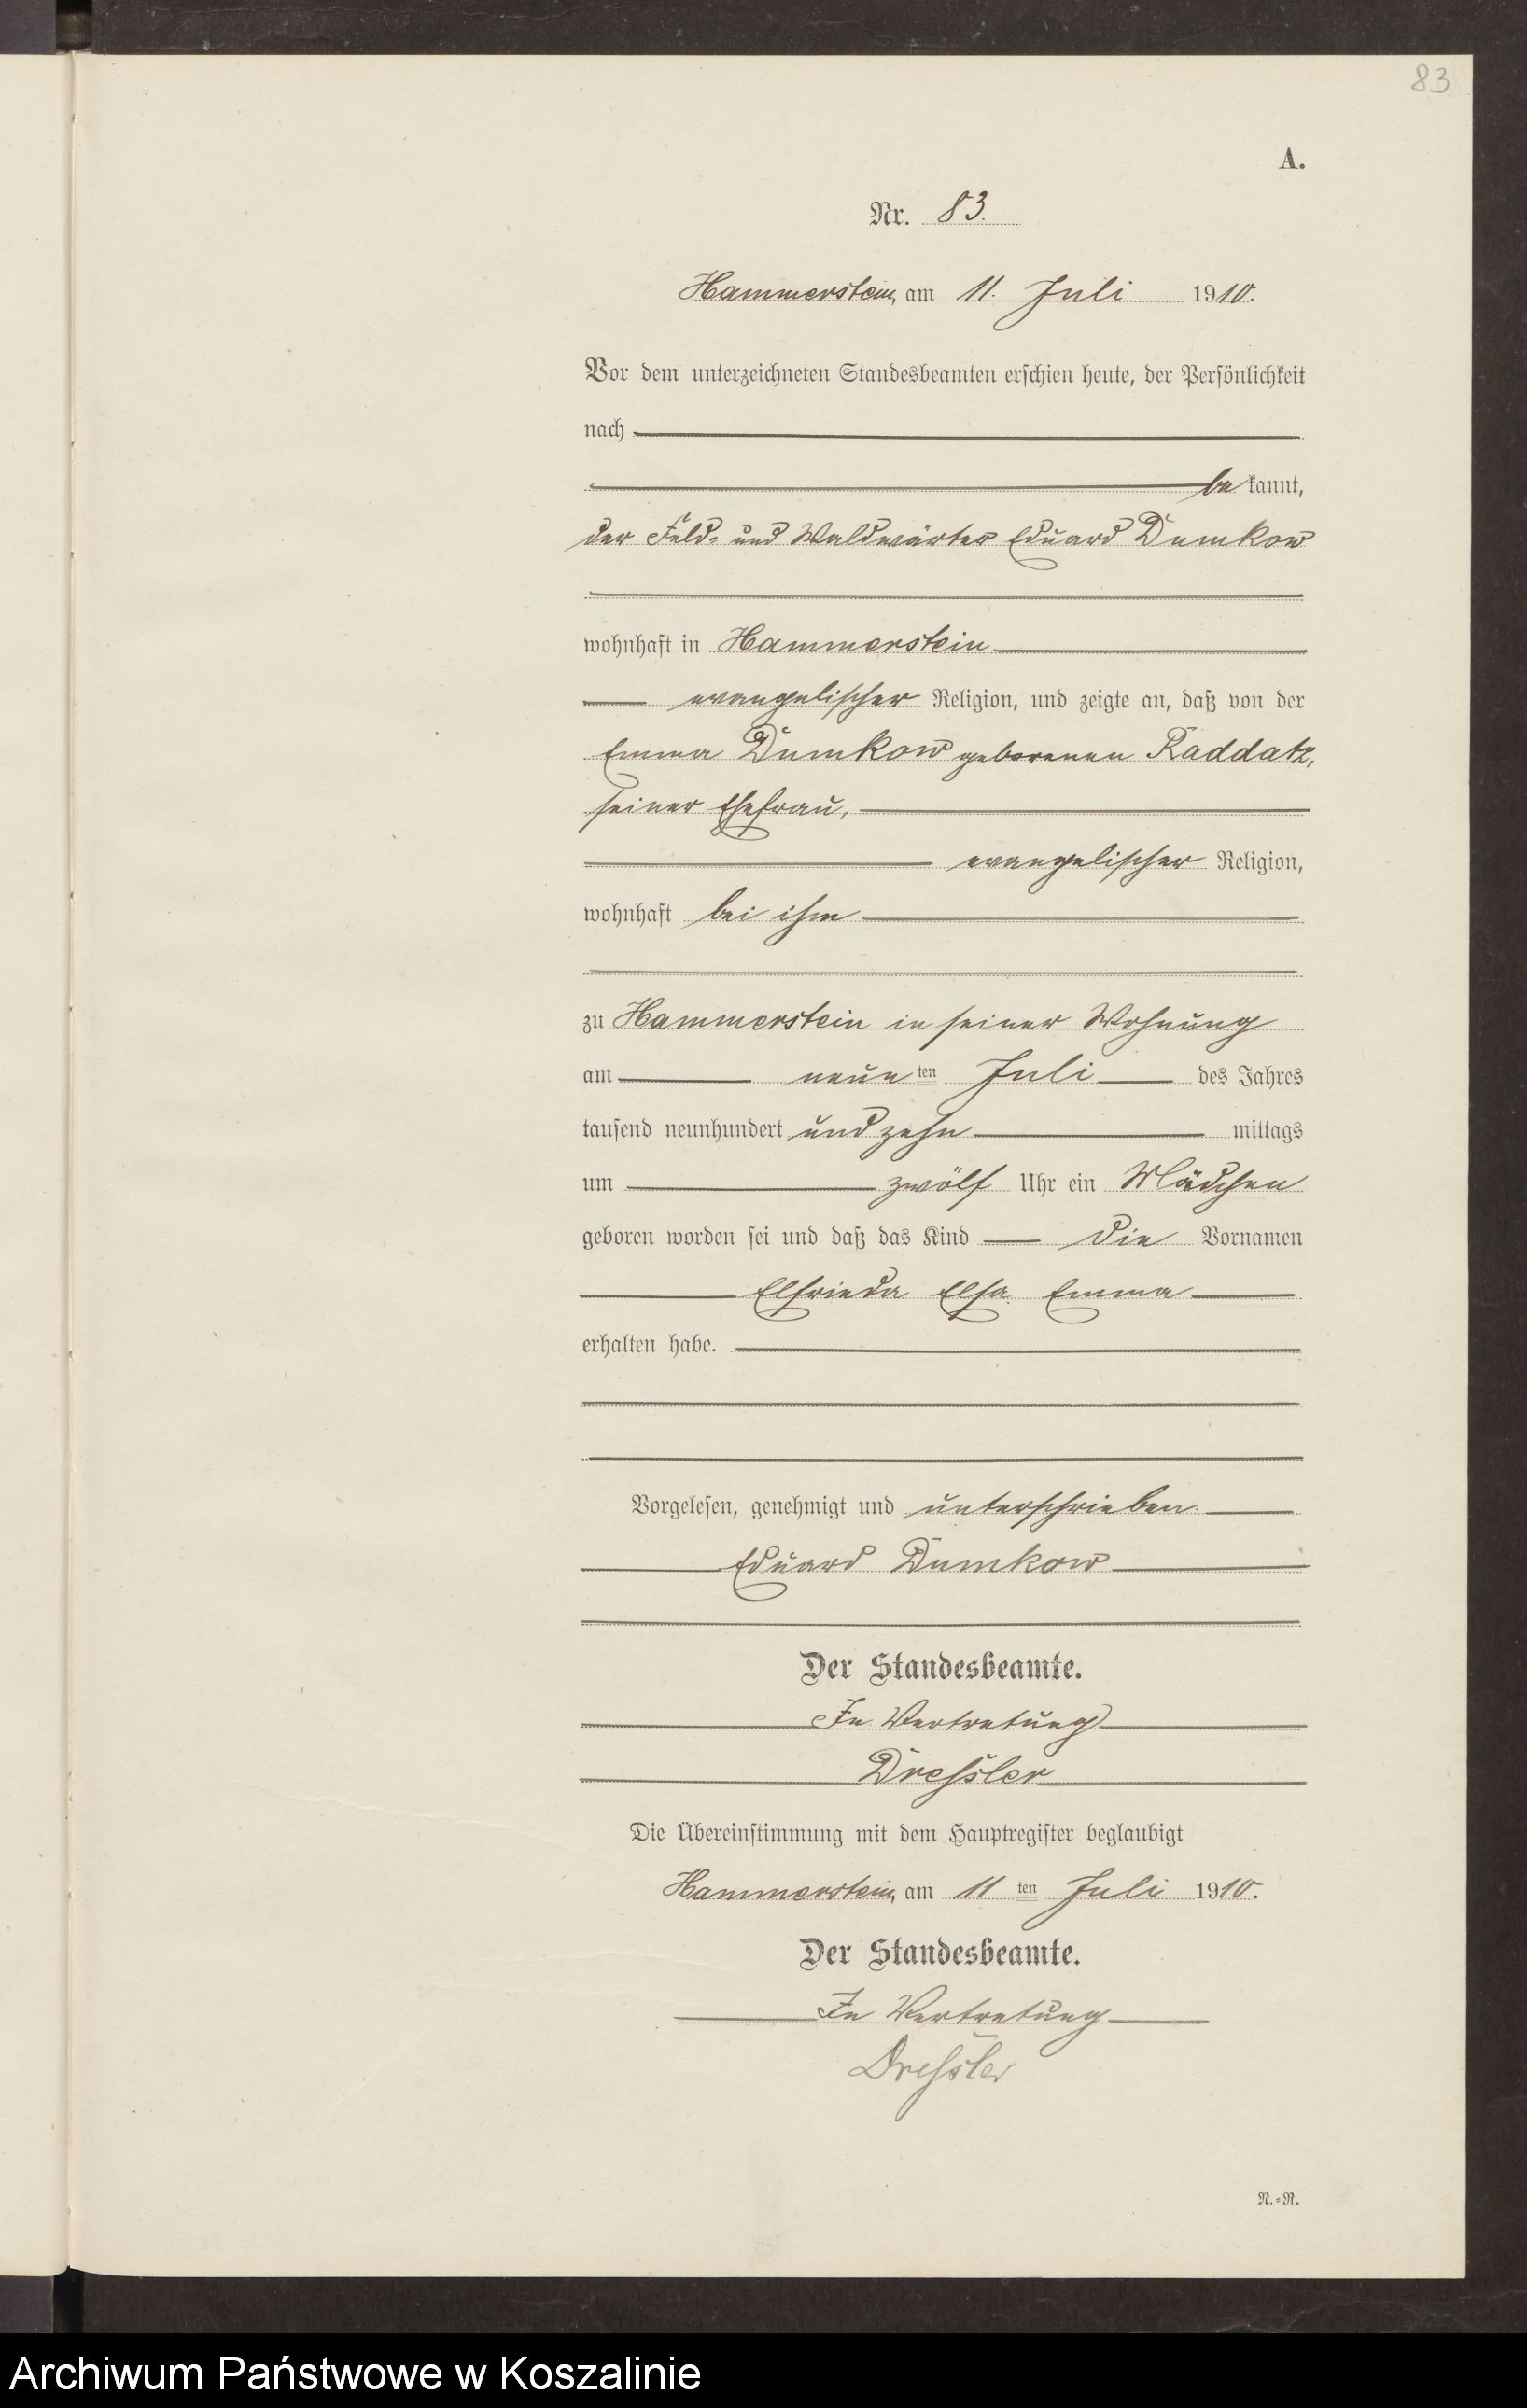 83
A.
Nr. 83.
Hammerstein, am 11. Juli 1910.
Vor dem unterzeichneten Standesbeamten erschien heute, der Persönlichkeit
nach
be kannt,
der Feld- und Waldwärter Eduard Dumkow
wohnhaft in Hammerstein
evangelischer Religion, und zeigte an, daß von der
Emma Dumkow geborenen Raddatz,
seiner Ehefrau,
evangelischer Religion,
wohnhaft bei ihm
zu Hammerstein in seiner Wohnung
am neun ten Juli des Jahres
tausend neunhundert und zehn mittags
um zwölf Uhr ein Mädchen
geboren worden sei und daß das Kind die Vornamen
Elfrieda Elsa Emma
erhalten habe.
Vorgelesen, genehmigt und unterschrieben.
Eduard Dumkow
Der Standesbeamte.
In Vertretung
Dressler
Die Übereinstimmung mit dem Hauptregister beglaubigt
Hammerstein, am 11 ten Juli 1910.
Der Standesbeamte.
In Vertretung
Dressler
N.-R.
Archiwum Państwowe w Koszalinie